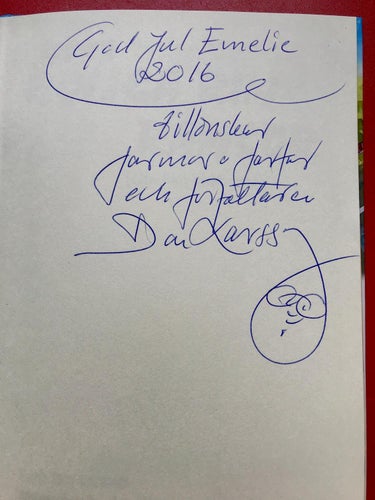 God Jul Emelie
2016
tillönskar
farmor o farfar
och författaren
Dan Larsson